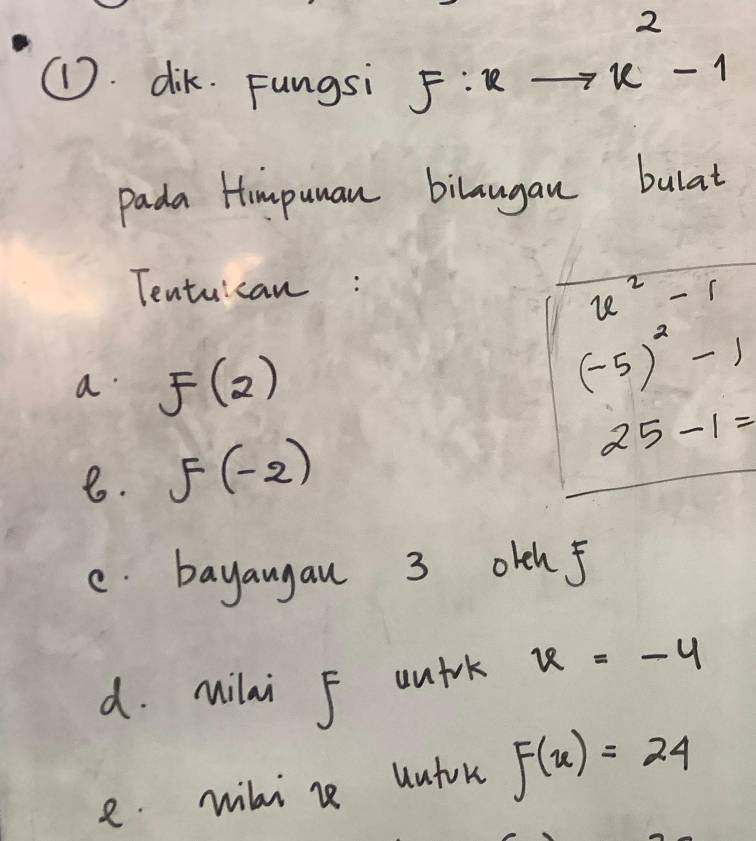 ①. dik. Fungsi F : x → x² - 1
pada Himpunan bilangan bulat
Tentukan :
a. F(2)
b. F(-2)
c. bayangan 3 oleh F
d. nilai F untuk x = -4
e. nilai x untuk F(x) = 24
x² - 1
(-5)² - 1
25 - 1 =